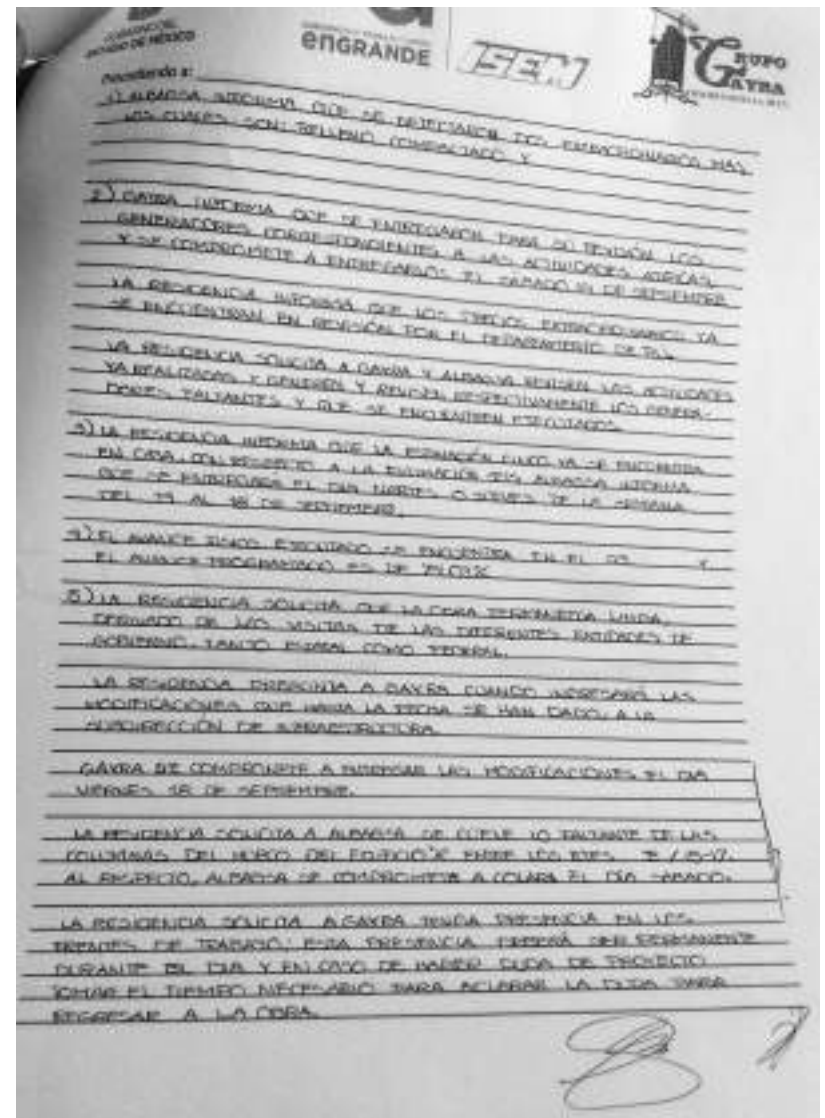 GOBIERNO DEL
ESTADO DE MÉXICO
enGRANDE
ISEM
GRUPO
GAYRA
Procediendo a:
1) ALBASSA INFORMA QUE SE DETECTARON DOS EXTRAORDINARIOS MAS
LOS CUALES SON: RELLENO COMPACTADO Y
2) GAYRA INFORMA QUE SE ENTREGARON PARA SU REVISIÓN LOS
GENERADORES CORRESPONDIENTES A LAS ACTIVIDADES
Y SE COMPROMETE A ENTREGARLOS EL SABADO DE SEPTIEMBRE
LA RESIDENCIA INFORMA QUE LOS PRECIOS EXTRAORDINARIOS YA
SE ENCUENTRAN EN REVISIÓN POR EL DEPARTAMENTO DE
LA RESIDENCIA SOLICITA A GAYRA Y ALBASSA REVISEN LAS ACTIVIDADES
YA REALIZADAS Y GENEREN Y REVISEN RESPECTIVAMENTE LOS GENERA-
DORES FALTANTES Y QUE SE ENCUENTREN EJECUTADOS
3) LA RESIDENCIA INFORMA QUE LA ESTIMACIÓN CINCO YA SE ENCUENTRA
EN CAJA, CON RESPECTO A LA ESTIMACIÓN SEIS ALBASSA INFORMA
QUE SE ENTREGARA EL DIA MARTES O JUEVES DE LA SEMANA
DEL 14 AL 18 DE SEPTIEMBRE.
4) EL AVANCE FISICO EJECUTADO SE ENCUENTRA EN EL Y
EL AVANCE PROGRAMADO ES DE
5) LA RESIDENCIA SOLICITA QUE LA OBRA PERMANEZCA LIMPIA,
DERIVADO DE LAS VISITAS DE LAS DIFERENTES ENTIDADES DE
GOBIERNO, TANTO ESTATAL COMO FEDERAL.
LA RESIDENCIA PREGUNTA A GAYRA CUANDO INGRESARÁ LAS
MODIFICACIONES QUE HASTA LA FECHA SE HAN DADO, A LA
SUBDIRECCIÓN DE INFRAESTRUCTURA.
GAYRA SE COMPROMETE A INGRESAR LAS MODIFICACIONES EL DIA
VIERNES 18 DE SEPTIEMBRE.
LA RESIDENCIA SOLICITA A ALBASSA SE CUELE LO FALTANTE DE LAS
COLUMNAS DEL MURO DEL EDIFICIO ENTRE LOS EJES
AL RESPECTO, ALBASSA SE COMPROMETE A COLARA EL DIA SABADO.
LA RESIDENCIA SOLICITA A GAYRA TENGA PRESENCIA EN LOS
FRENTES DE TRABAJO; ESTA PRESENCIA DEBERÁ SER PERMANENTE
DURANTE EL DIA Y EN CASO DE HABER DUDA DE PROYECTO
TOMAR EL TIEMPO NECESARIO PARA ACLARAR LA DUDA PARA
REGRESAR A LA OBRA.